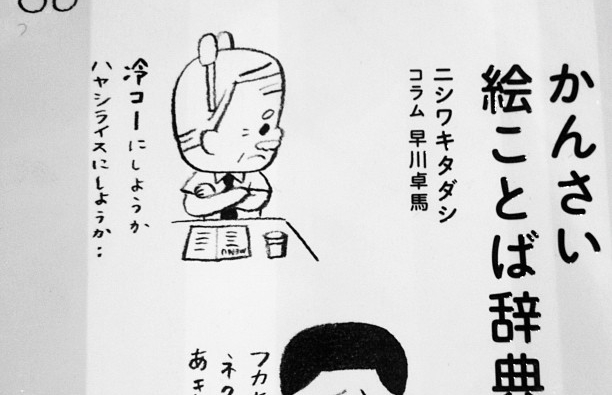 かんさい
絵ことば辞典
ニシワキタダシ
コラム 早川卓馬
冷コーにしようか
ハヤシライスにしようか…
MENU
フカヒ
ネク
あき